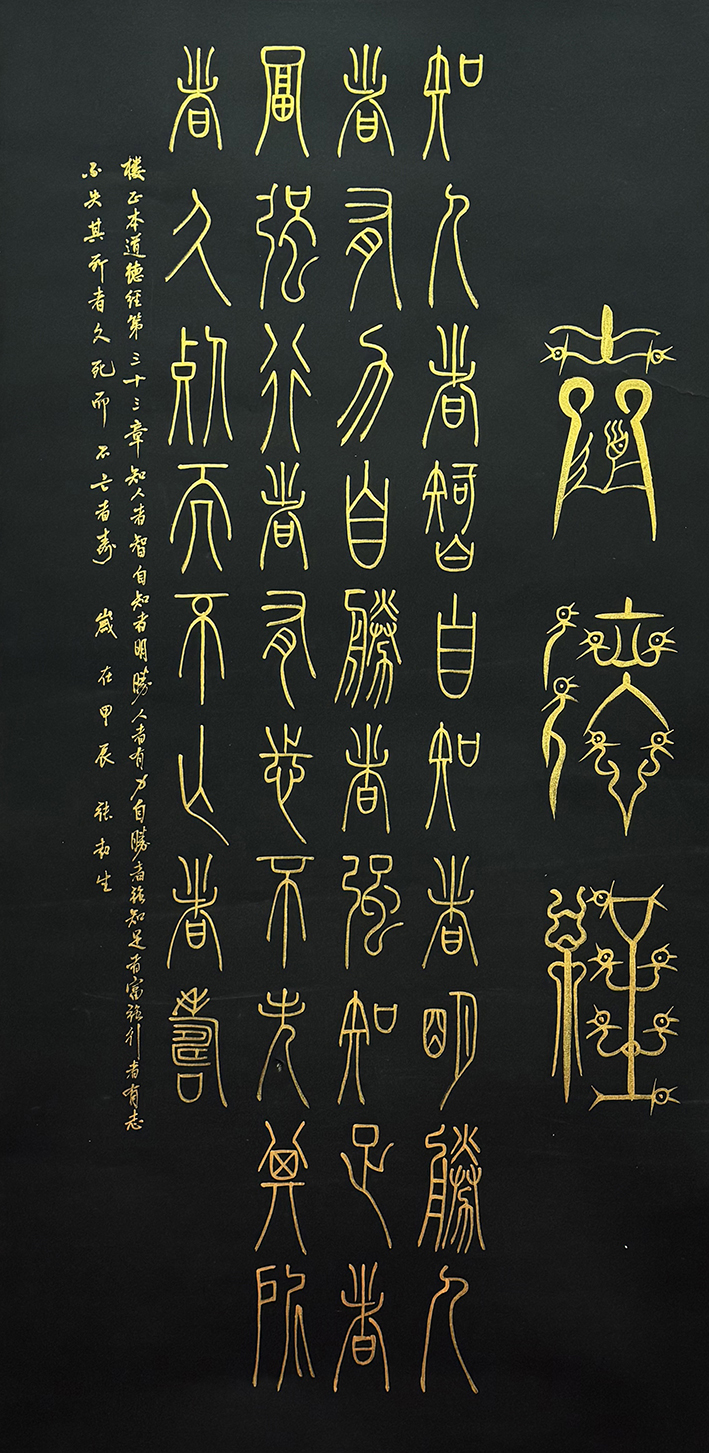 道德經
知人者智自知者明勝人
者有力自勝者强知足者
富强行者有志不失其所
者久死而不亡者壽
楼正本道德经第三十三章知人者智自知者明勝人者有力自勝者强知足者富强行者有志
不失其所者久死而不亡者寿 歲在甲辰 张劲生